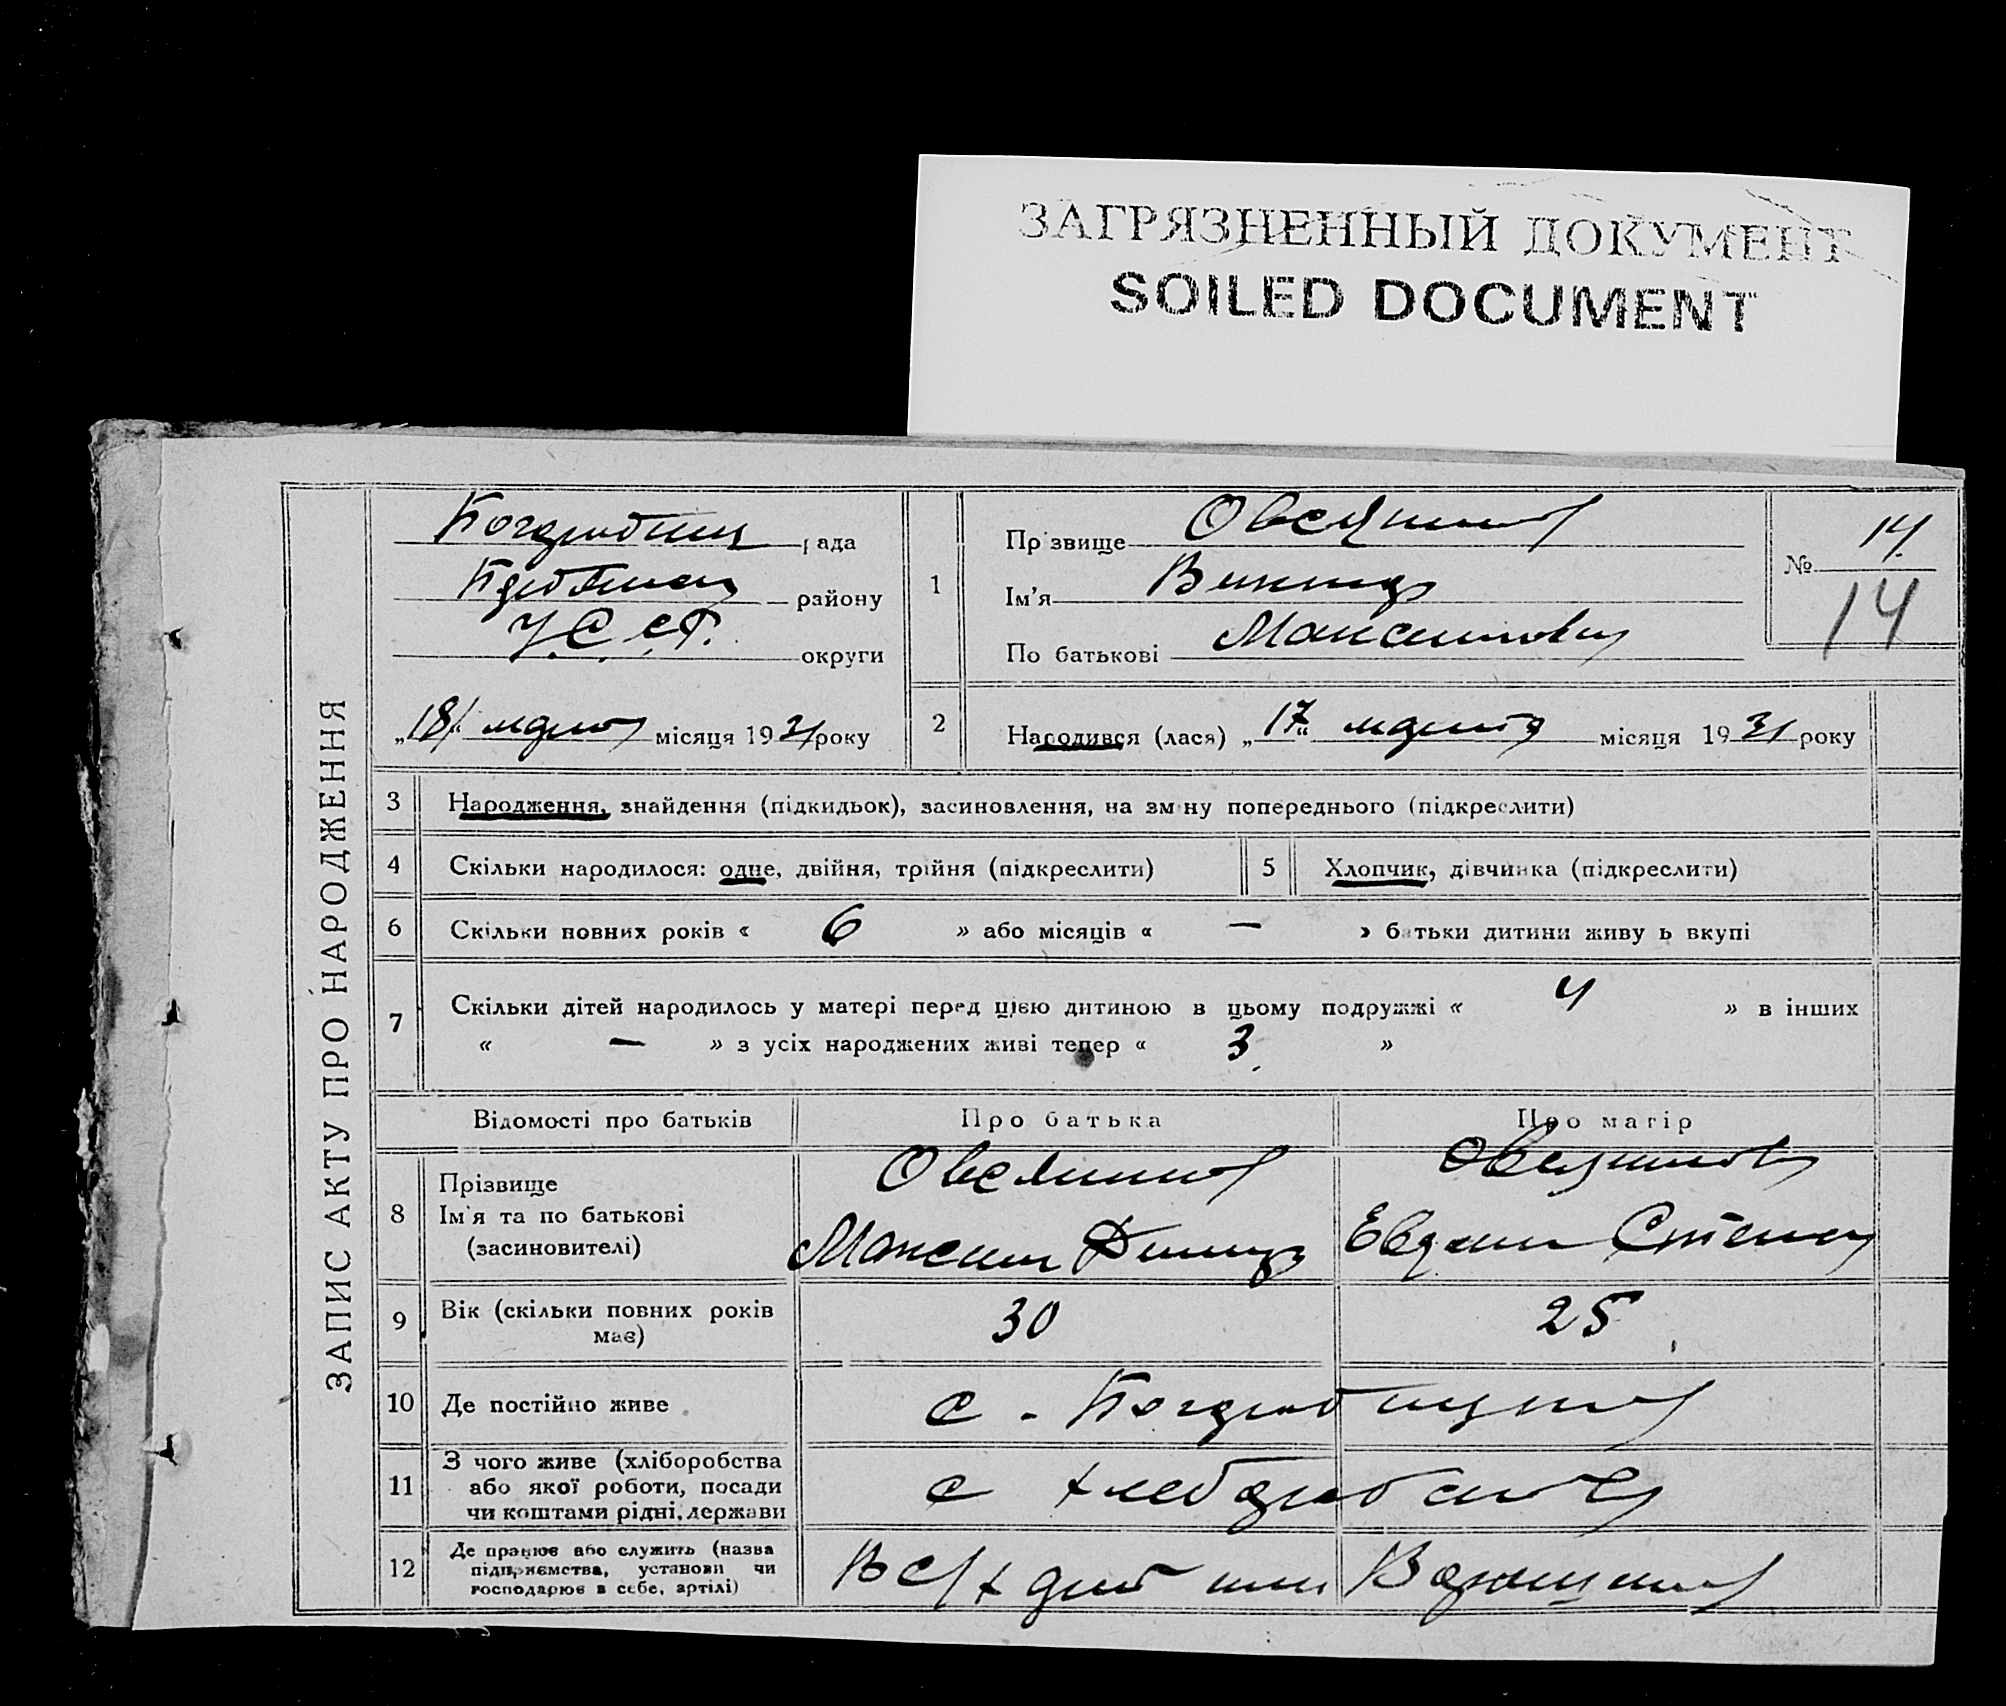 ЗАГРЯЗНЕННЫЙ ДОКУМЕНТ
SOILED DOCUMENT
ЗАПИС АКТУ ПРО НАРОДЖЕННЯ
рада
району
У.С.С.Р.
округи
„18“ марта місяця 1931 року
1
Прізвище Овсянников
Ім'я
По батькові Максимович
№ 14
14
2
Народився (лася) „17“ марта місяця 1931 року
3 Народження, знайдення (підкидьок), засиновлення, на зміну попереднього (підкреслити)
4 Скільки народилося: одне, двійня, трійня (підкреслити)
5 Хлопчик, дівчинка (підкреслити)
6 Скільки повних років « 6 » або місяців « — » батьки дитини живуть вкупі
7 Скільки дітей народилось у матері перед цією дитиною в цьому подружжі « 4 » в інших
« — » з усіх народжених живі тепер « 3 »
Відомості про батьків Про батька Про матір
8 Прізвище
Ім'я та по батькові
(засиновителі)
Овсянников
Максим
Овсянникова
9 Вік (скільки повних років
має)
30 25
10 Де постійно живе с.
11 З чого живе (хліборобства
або якої роботи, посади
чи коштами рідні, держави
с
12 Де працює або служить (назва
підприємства, установи чи
господарює в себе, артілі)